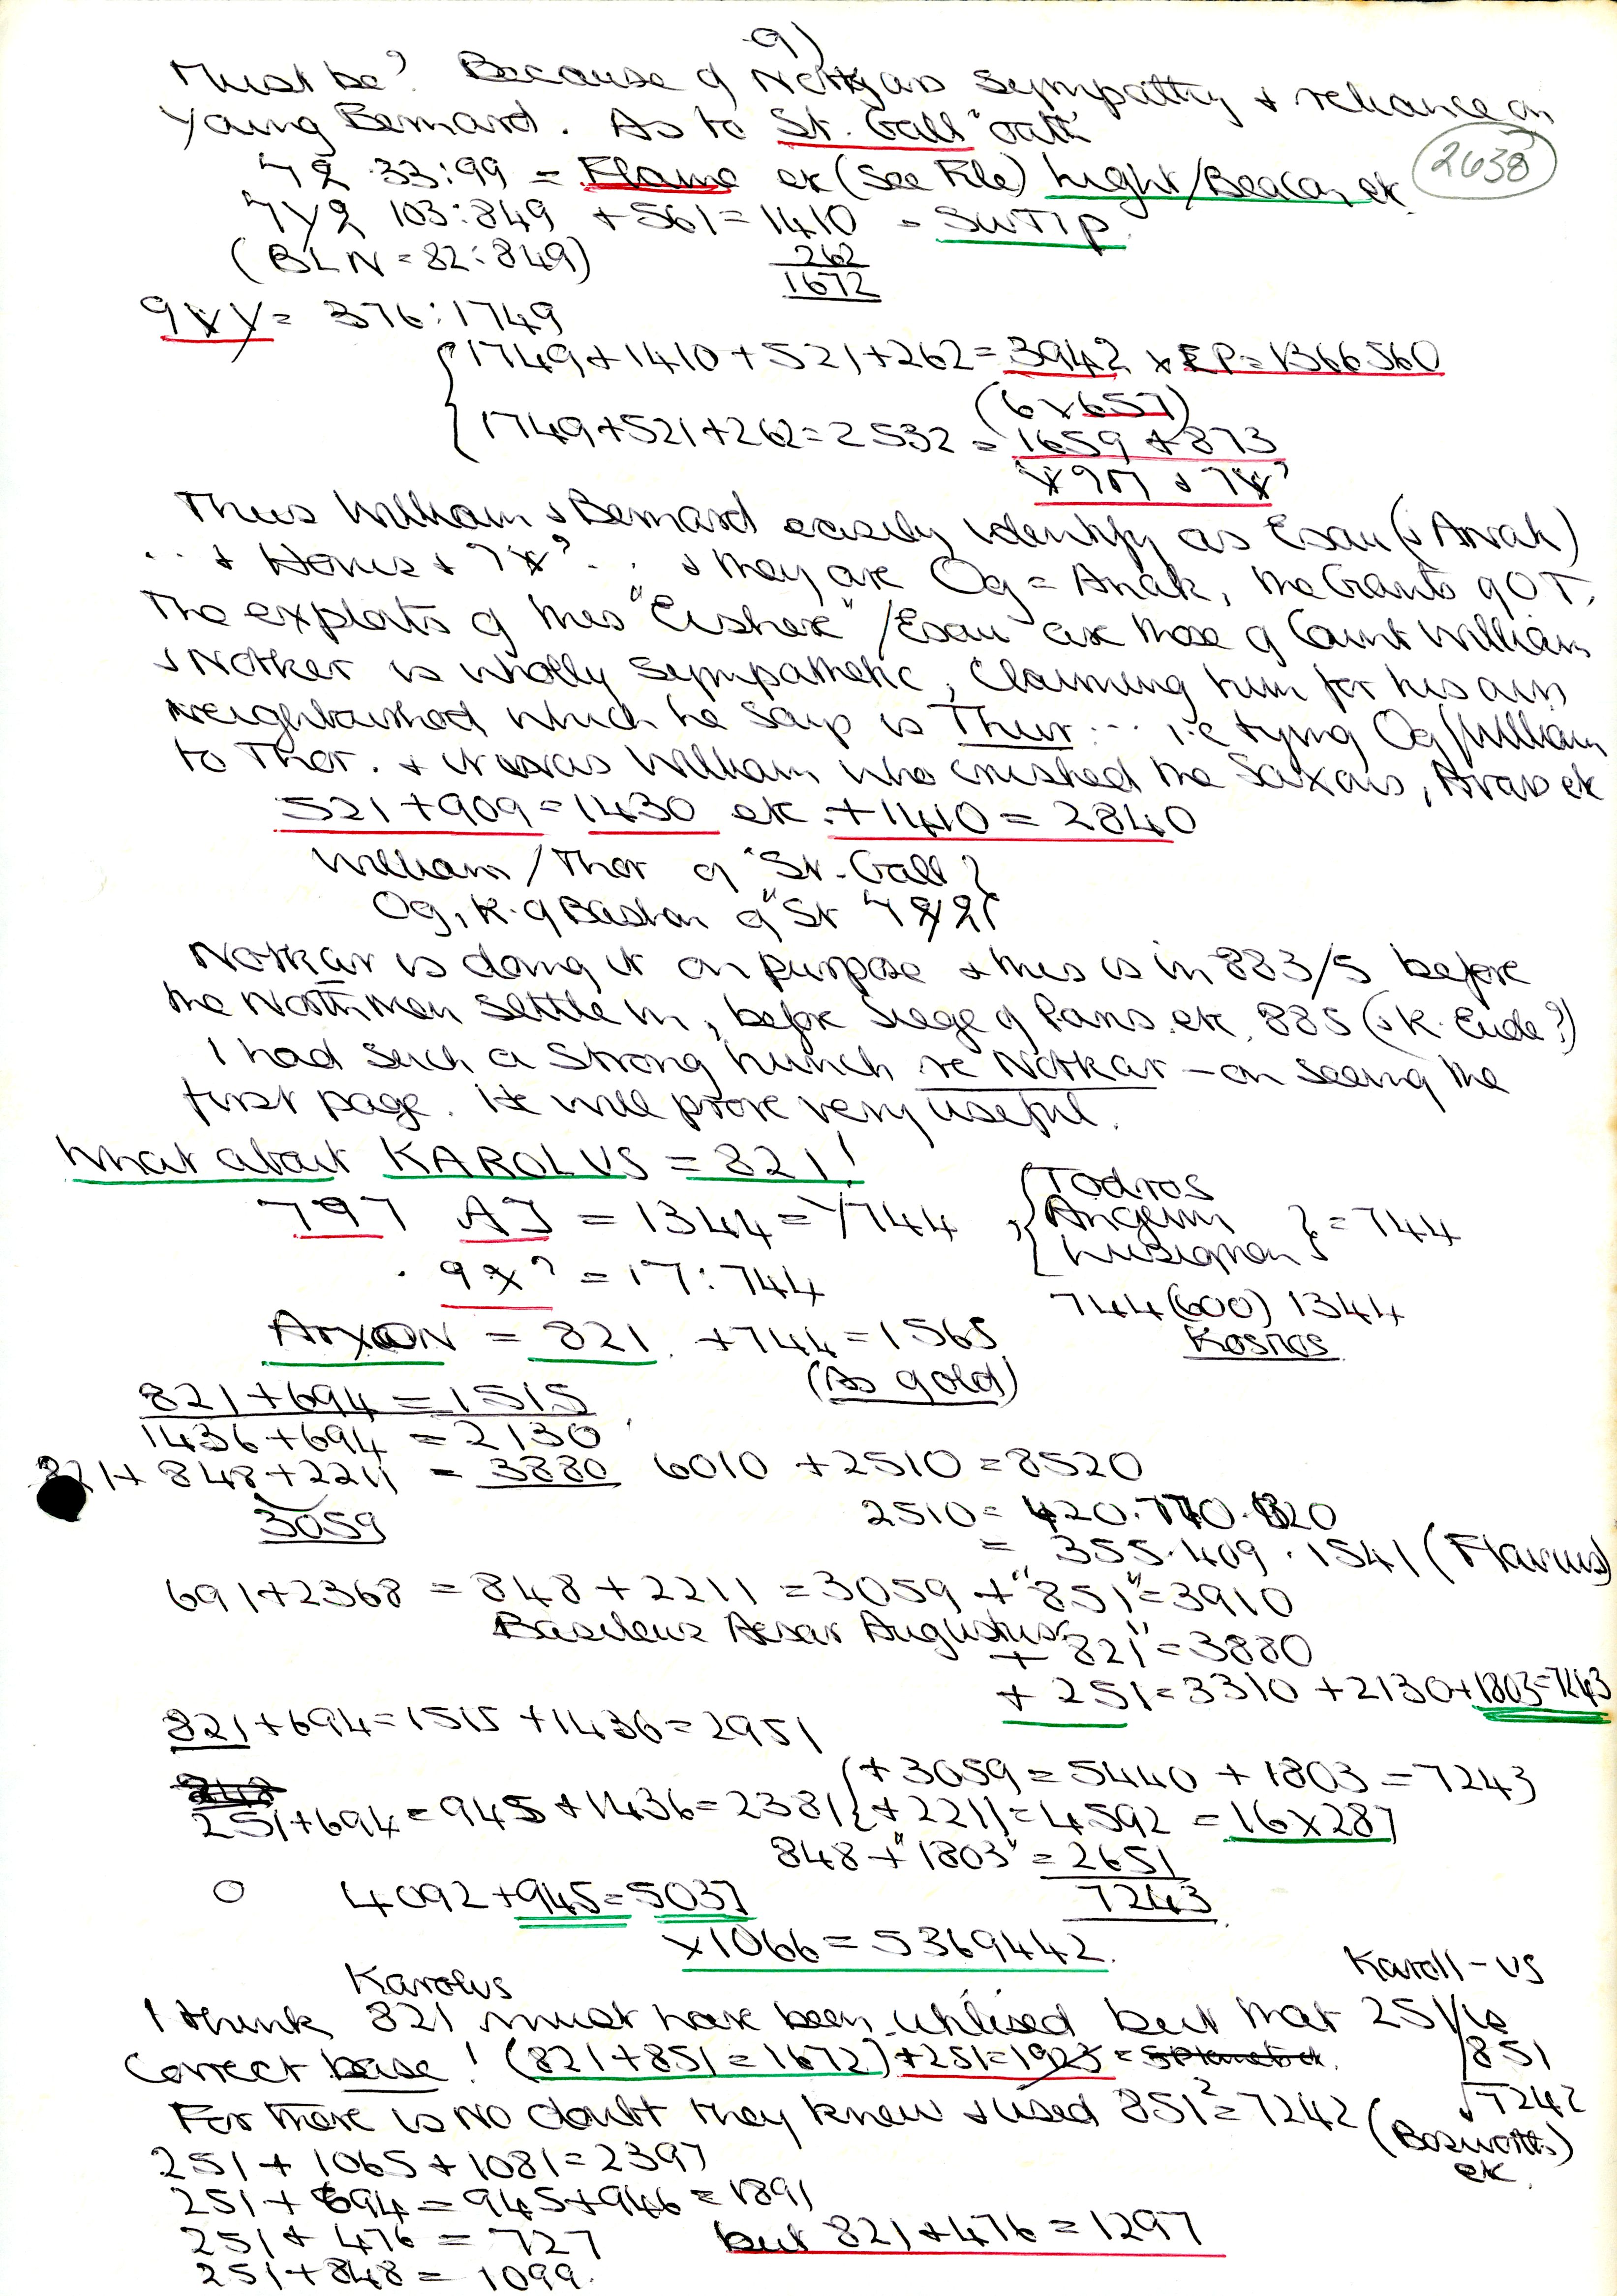 9)
Must be? Because of Notkars sympathy & reliance on
young Bernard. As to St. Gall "oath"
2638
33:99 = Flame ek (see File) Light/Beacon ek.
103:849 + 561 = 1410 = SWTIP
(BLN = 82:849) 262
1672
= 376:1749
1749 + 1410 + 521 + 262 = 3942 x EP = 1366560
(6 x 657)
1749 + 521 + 262 = 2532 = 1659 + 873
Thus William & Bernard easily identify as Esau (& Anak)
.. & Horus & .. & they are Og = Anak, the Giants of O T.
The exploits of this "Eishere" / Esau are those of Count William
& Notker is wholly sympathetic, claiming him for his own
neighbourhood which he says is Thur... i.e tying Og/William
to Thor. & it was William who crushed the Saxons, Avars ek
521 + 909 = 1430 ek. + 1410 = 2840
William / Thor of "St. Gall
Og, K. of Bashan of "St
Notkar is doing it on purpose & this is in 883/5 before
the Northmen settle in, before Siege of Paris. ek. 885 (& K. Eude?)
I had such a strong hunch re Notkar - on seeing the
first page. He will prove very useful.
What about KAROLUS = 821!
797 AJ = 1344 = 744 , { Todros
Angevin
Lusignan } = 744
= 17:744
744 (600) 1344
Kosnos
= 821. + 744 = 1565
(As gold)
821 + 694 = 1515
1436 + 694 = 2130
821 + 848 + 2211 = 3880 6010 + 2510 = 8520
3059
2510 = 420. 770. 1320
= 355. 409. 1541 (Flavius)
691 + 2368 = 848 + 2211 = 3059 + "851" = 3910
Basileus Aesar Augustus
+ "821" = 3880
+ 251 = 3310 + 2130 + 1803 = 7243
821 + 694 = 1515 + 1436 = 2951
251 + 694 = 945 + 1436 = 2381 { + 3059 = 5440 + 1803 = 7243
+ 2211 = 4592 = 16 x 287
848 + "1803" = 2651
7243
4092 + 945 = 5037
x 1066 = 5369442.
Karolus
Karoll - us
I think 821 must have been utilised but that 251 is
correct base! (821 + 851 = 1672) + 251 = 1923 =
851
For there is no doubt they knew & used 851² = 7242 (Bosworth)
√7242
ek.
251 + 1065 + 1081 = 2397
251 + 694 = 945 + 946 = 1891
251 + 476 = 727 but 821 + 476 = 1297
251 + 848 = 1099.